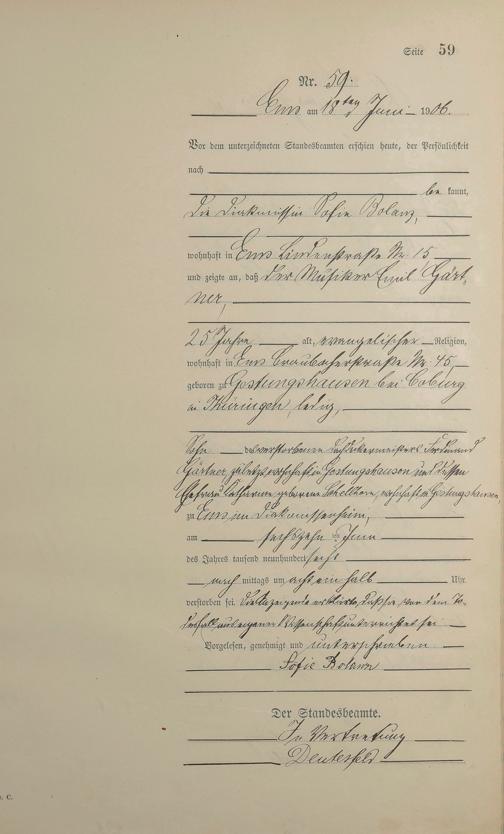 Seite 59
Nr. 59.
Ems am 18ten Juni 1906.
Vor dem unterzeichneten Standesbeamten erschien heute, der Persönlichkeit
nach
be kannt,
die Diakonissin Sofie Bolanz,
wohnhaft in Ems Lindenstraße Nr. 15
und zeigte an, daß der Musiker Emil Gärt-
ner,
25 Jahre alt, evangelischer Religion,
wohnhaft in Ems Braubacherstraße Nr. 45,
geboren zu Gestungshausen bei Coburg
in Thüringen, ledig,
Sohn des verstorbenen Ferdinand
Gärtner, zuletzt wohnhaft in Gestungshausen und dessen
Ehefrau geborene Schellhorn, wohnhaft in Gestungshausen,
zu Ems im Diakonissenheim,
am sechszehn ten Juni
des Jahres tausend neunhundert sechs
nach mittags um acht ein halb Uhr
verstorben sei. Die Anzeigende erklärte, daß sie von dem To-
desfall aus eigener Wissenschaft unterrichtet sei
Vorgelesen, genehmigt und unterschrieben
Sofie
Der Standesbeamte.
In Vertretung